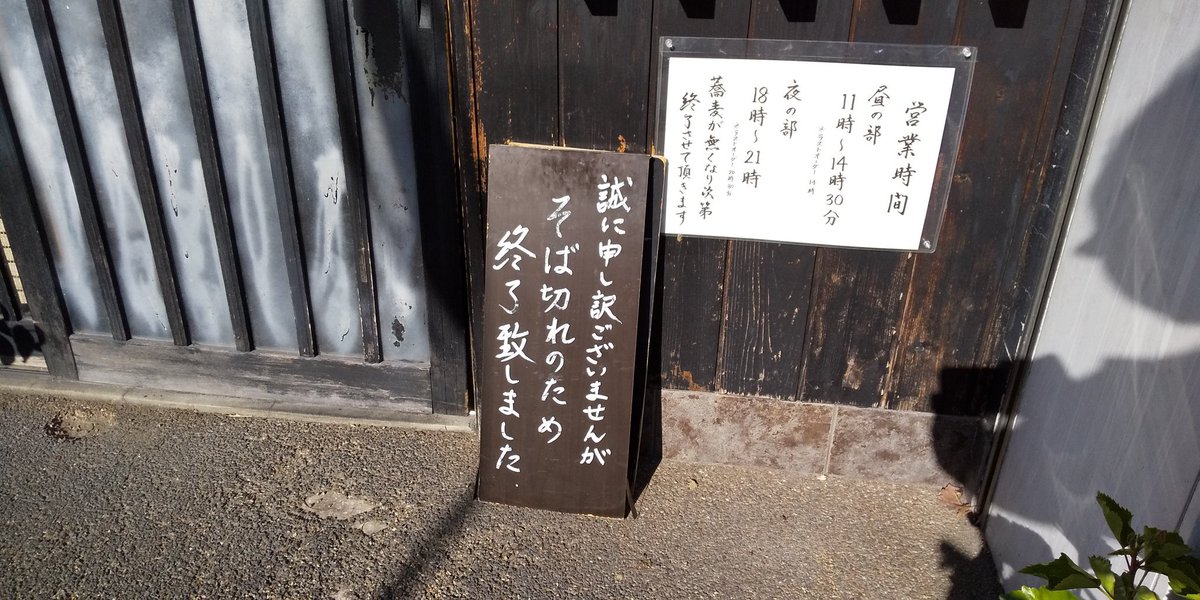 営業時間
昼の部
11時〜14時30分
※ラストオーダー14時
夜の部
18時〜21時
※ラストオーダー20時30分
蕎麦が無くなり次第
終了させて頂きます
誠に申し訳ございませんが
そば切れのため
終了致しました.